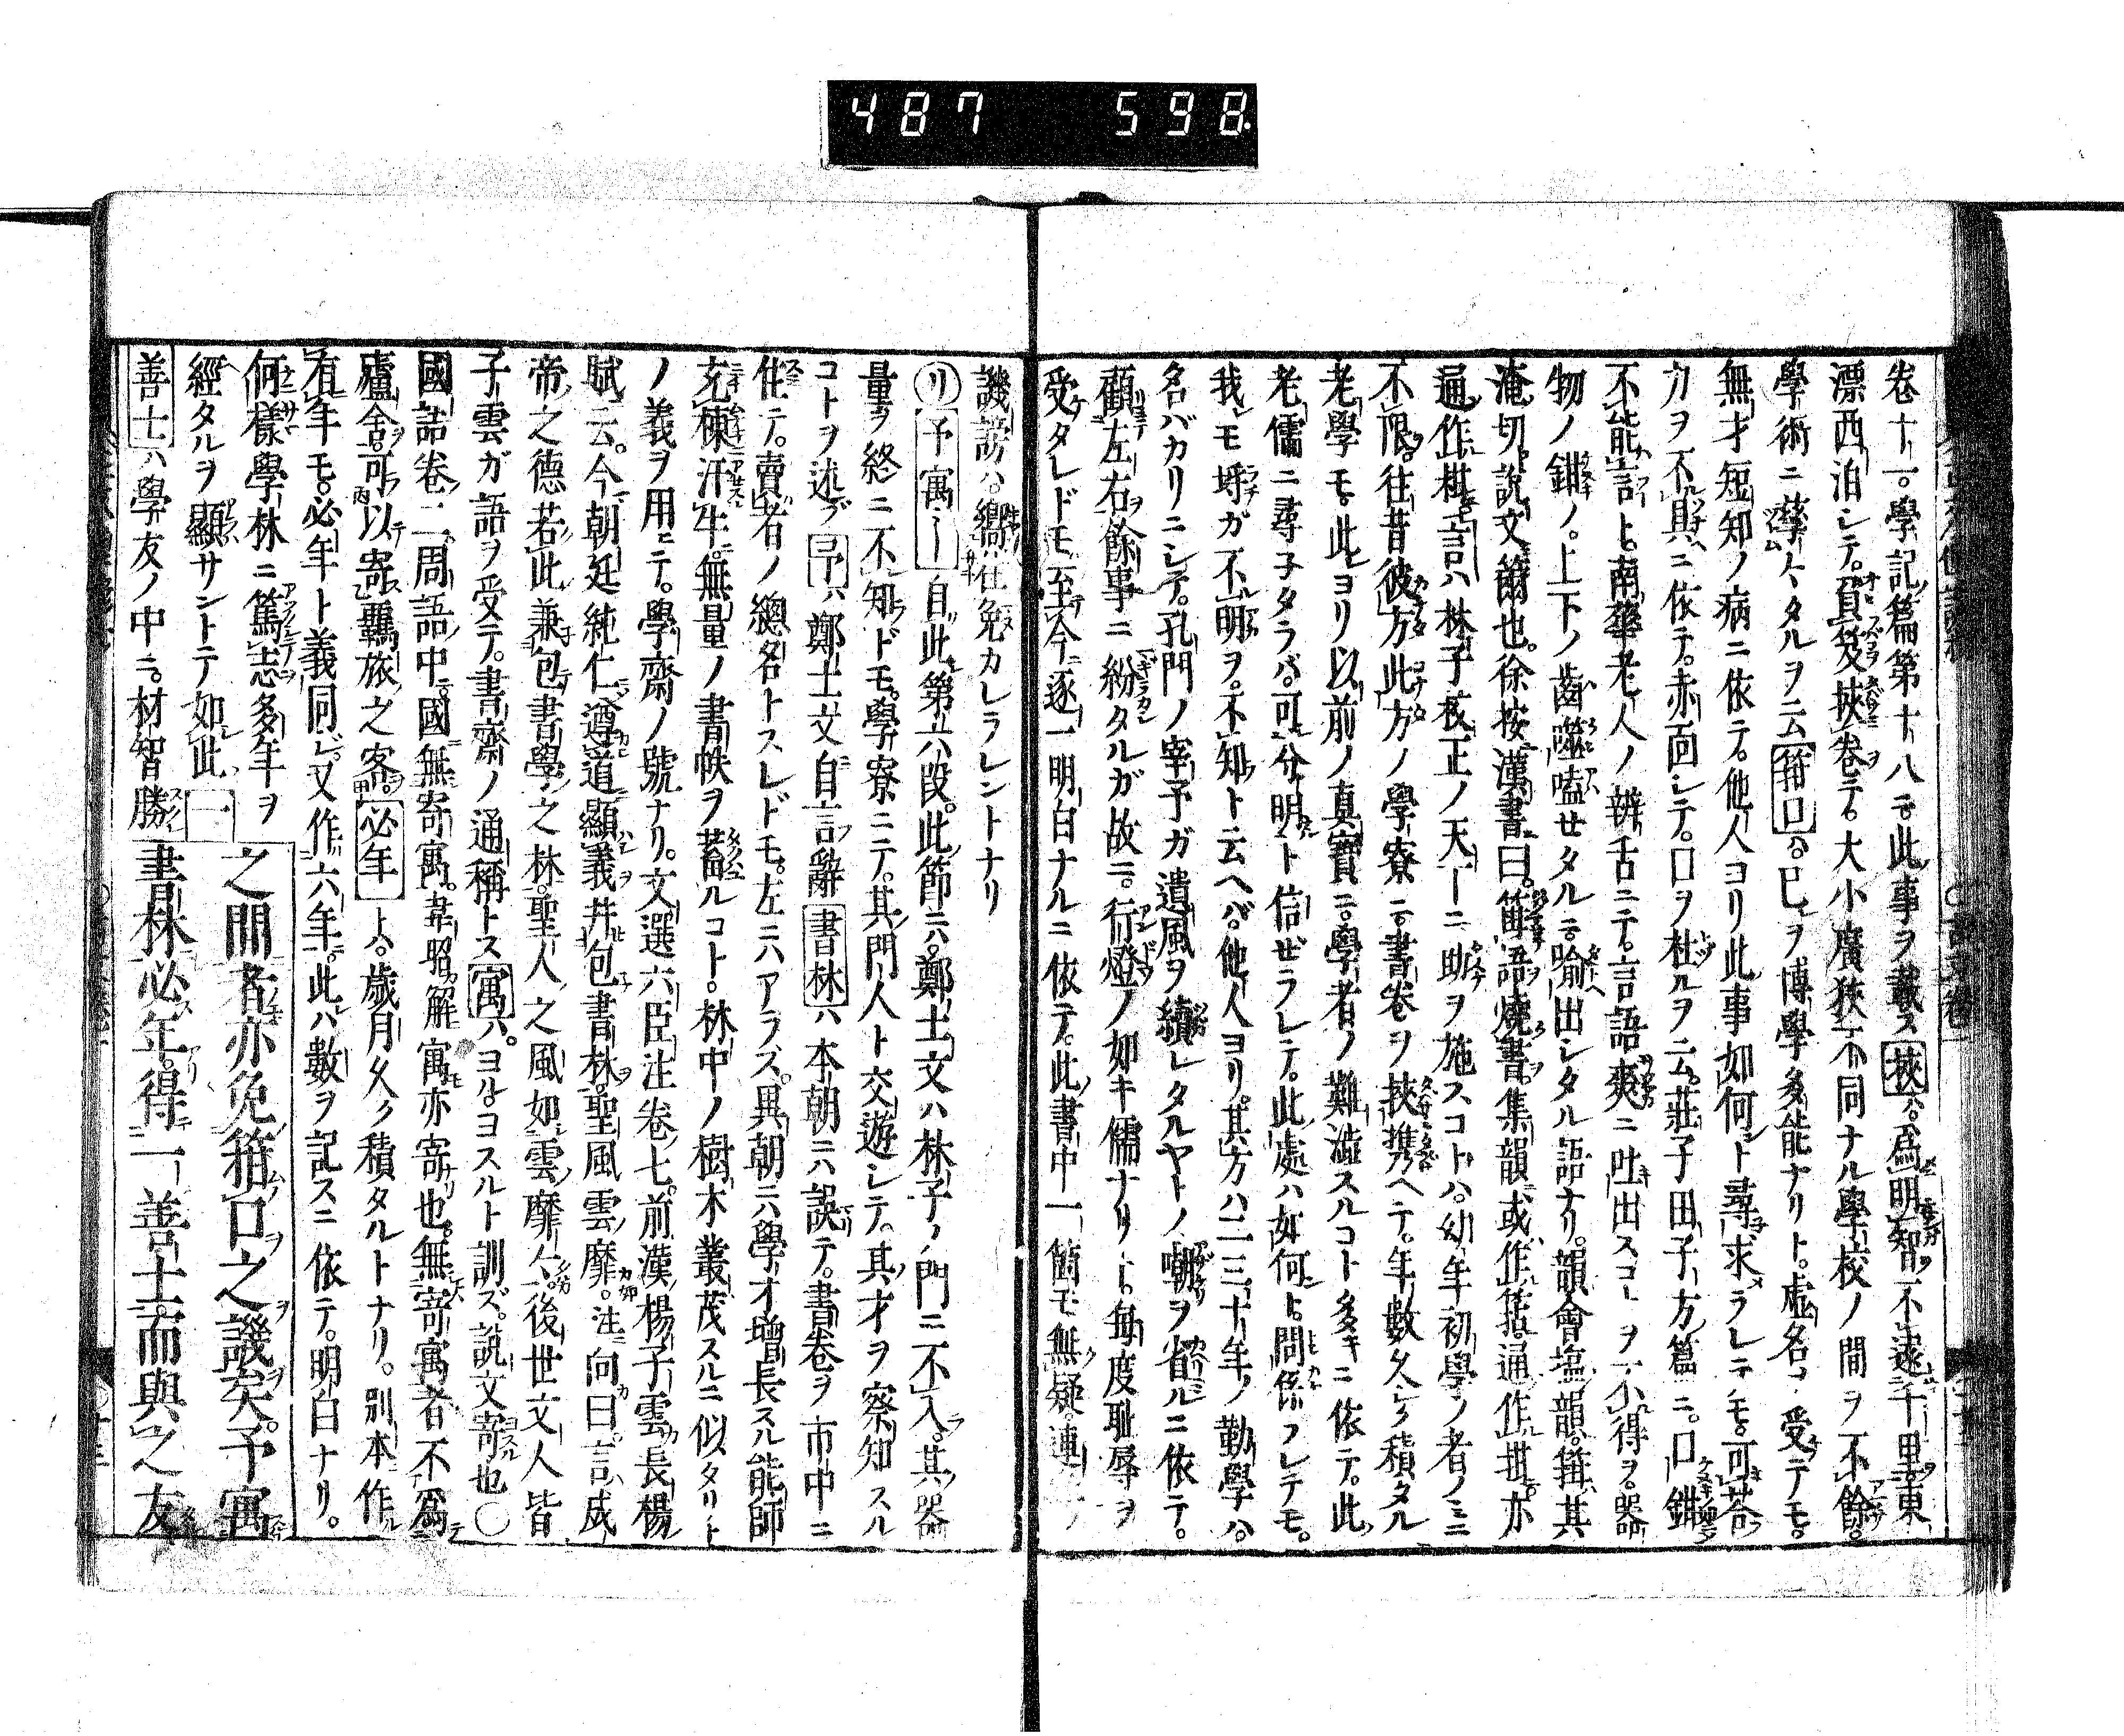 487 598
卷十一。學記篇第十八ニ。此事ヲ載ス挾ハ。爲明智不遠千里。東
漂西泊シテ。負笈挾卷テ。大小廣狹不同ナル學校ノ間ヲ不餘。
學術ニ孳〻タルヲ云箝口ハ。已ヲ博學多能ナリト。虛名ヲ受テモ。
無才短知ノ病ニ依テ。他人ヨリ此事如何ト尋求ラレテモ。可荅
力ヲ不具ニ依テ。赤面シテ。口ヲ杜ルヲ云。莊子田子方篇ニ。口鉗
不能言ト。南華老人ノ辨舌ニテ。言語爽ニ吐出スコヲ不得ヲ。器
物ノ鉗ノ。上下ノ齒噬嗑セタルニ喻出シタル語ナリ。韻會塩韻。箝其
淹切。說文籋也。徐按漢書曰。箝語燒書。集韻或作拑。通作
通作柑言ハ林子校正ノ天ニ助ヲ施スコトハ。幼年初學ノ者ノミニ
不限。往昔彼方此方ノ學寮ニ書卷ヲ挾携ヘテ。年數久シク積タル
老學モ。此ヨリ以前ノ真寶ニ。學者ノ難澁スルコト多キニ依テ。此
老儒ニ尋子タラバ。可分明ト信ゼラレテ。此處ハ如何ト。問係フレテモ。
我モ埒ガ不明ヲ。不知ト云ヘバ。他人ヨリ。其方ハ二三十年ノ勤學ハ。
名バカリニシテ。孔門ノ宰予ガ遺風ヲ續レタルヤトノ嘲ヲ省ルニ依テ。
顧左右餘事ニ紛タルガ故ニ。行燈ノ如キ儒ナリト。每度耻辱ヲ
受タレドモ。至今逐一明白ナルニ依テ。此書中一箇モ無疑。
譏謗ハ。嚮往免カレラレントナリ
リ予寓 自此第六段。此節ニハ。鄭士文ハ林子ノ門ニ不入。其器
量ヲ終ニ不知ドモ。學寮ニテ。其門人ト交遊シテ。其才ヲ察知スル
コトヲ述ブ予ハ鄭士文自言辭書林ハ本朝ニハ誤テ。書卷ヲ市中ニ
住テ。賣者ノ總名トスレドモ。左ニハアラズ。異朝ニハ學才增長スル能師
充棟汗牛。無量ノ書帙ヲ蓄ルコト。林中ノ樹木叢茂スルニ似タリト
ノ義ヲ用ニテ。學齋ノ號ナリ。文選六臣注卷七。前漢楊子雲長楊
賦云。今朝廷純仁遵道顯義幷包書林。聖風雲靡。注向曰。言成
帝之德若此兼包書學之林。聖人之風如雲靡〻。後世文人皆
子雲ガ語ヲ受テ。書齋ノ通稱トス寓ハ。ヨルヨスルト訓ズ。說文寄也〇
國語卷二周語中。國無寄寓。韋昭解寓亦寄也。無寄寓者不爲
廬舍。可以寄羈旅之客。必年ハ。歲月久ク積タルトナリ。別本作
有年モ。必年ト義同ジ。又作六年。此ハ數ヲ記スニ依テ。明白ナリ。
何樣學林ニ篤志多年ヲ
經タルヲ顯サントテ如此一
善士ハ學友ノ中ニ。材智勝
之間者亦免箝口之譏矣。予寓
書林必年。得一善士而與之友